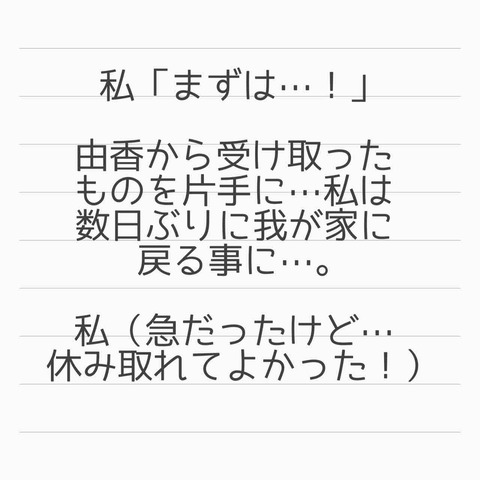 私「まずは…！」
由香から受け取った
ものを片手に…私は
数日ぶりに我が家に
戻る事に…。
私（急だったけど…
休み取れてよかった！）